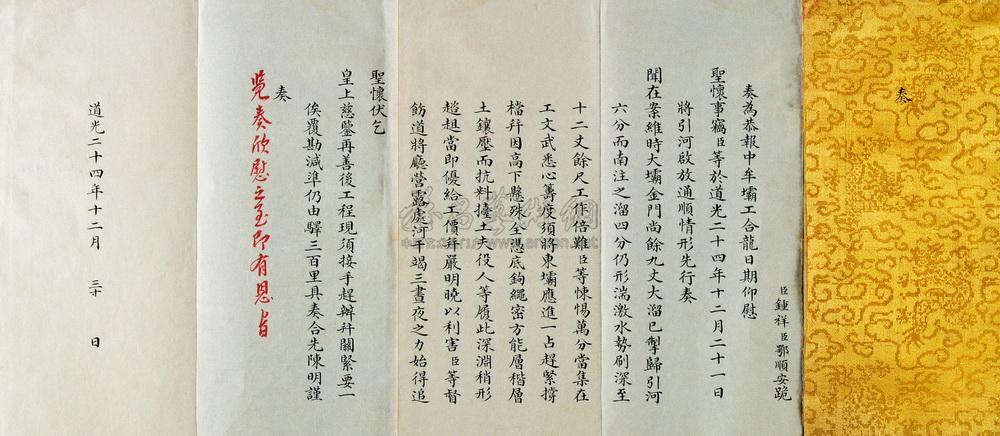 奏
臣鍾祥臣鄂順安跪
奏為恭報中牟壩工合龍日期仰慰
聖懷事竊臣等於道光二十四年十二月二十一日
將引河啟放通順情形先行奏
聞在案維時大壩金門尚餘九丈大溜已掣歸引河
六分而南注之溜四分仍形湍激水勢刷深至
十二丈餘尺工作倍難臣等悚惕萬分當集在
工文武悉心籌度須將東壩應進一占趕緊撐
檔幷因高下懸殊全憑底鉤繩密方能層稭層
土鑲壓而抗料擡土夫役人等履此深淵稍形
趦趄當即優給工價幷嚴明曉以利害臣等督
飭道將廳營露處河干竭三晝夜之力始得追
聖懷伏乞
皇上慈鑒再善後工程現須接手趕辦幷關緊要一
俟覆勘減準仍由驛三百里具奏合先陳明謹
奏
覽奏欣慰之至即有恩旨
道光二十四年十二月 三十 日